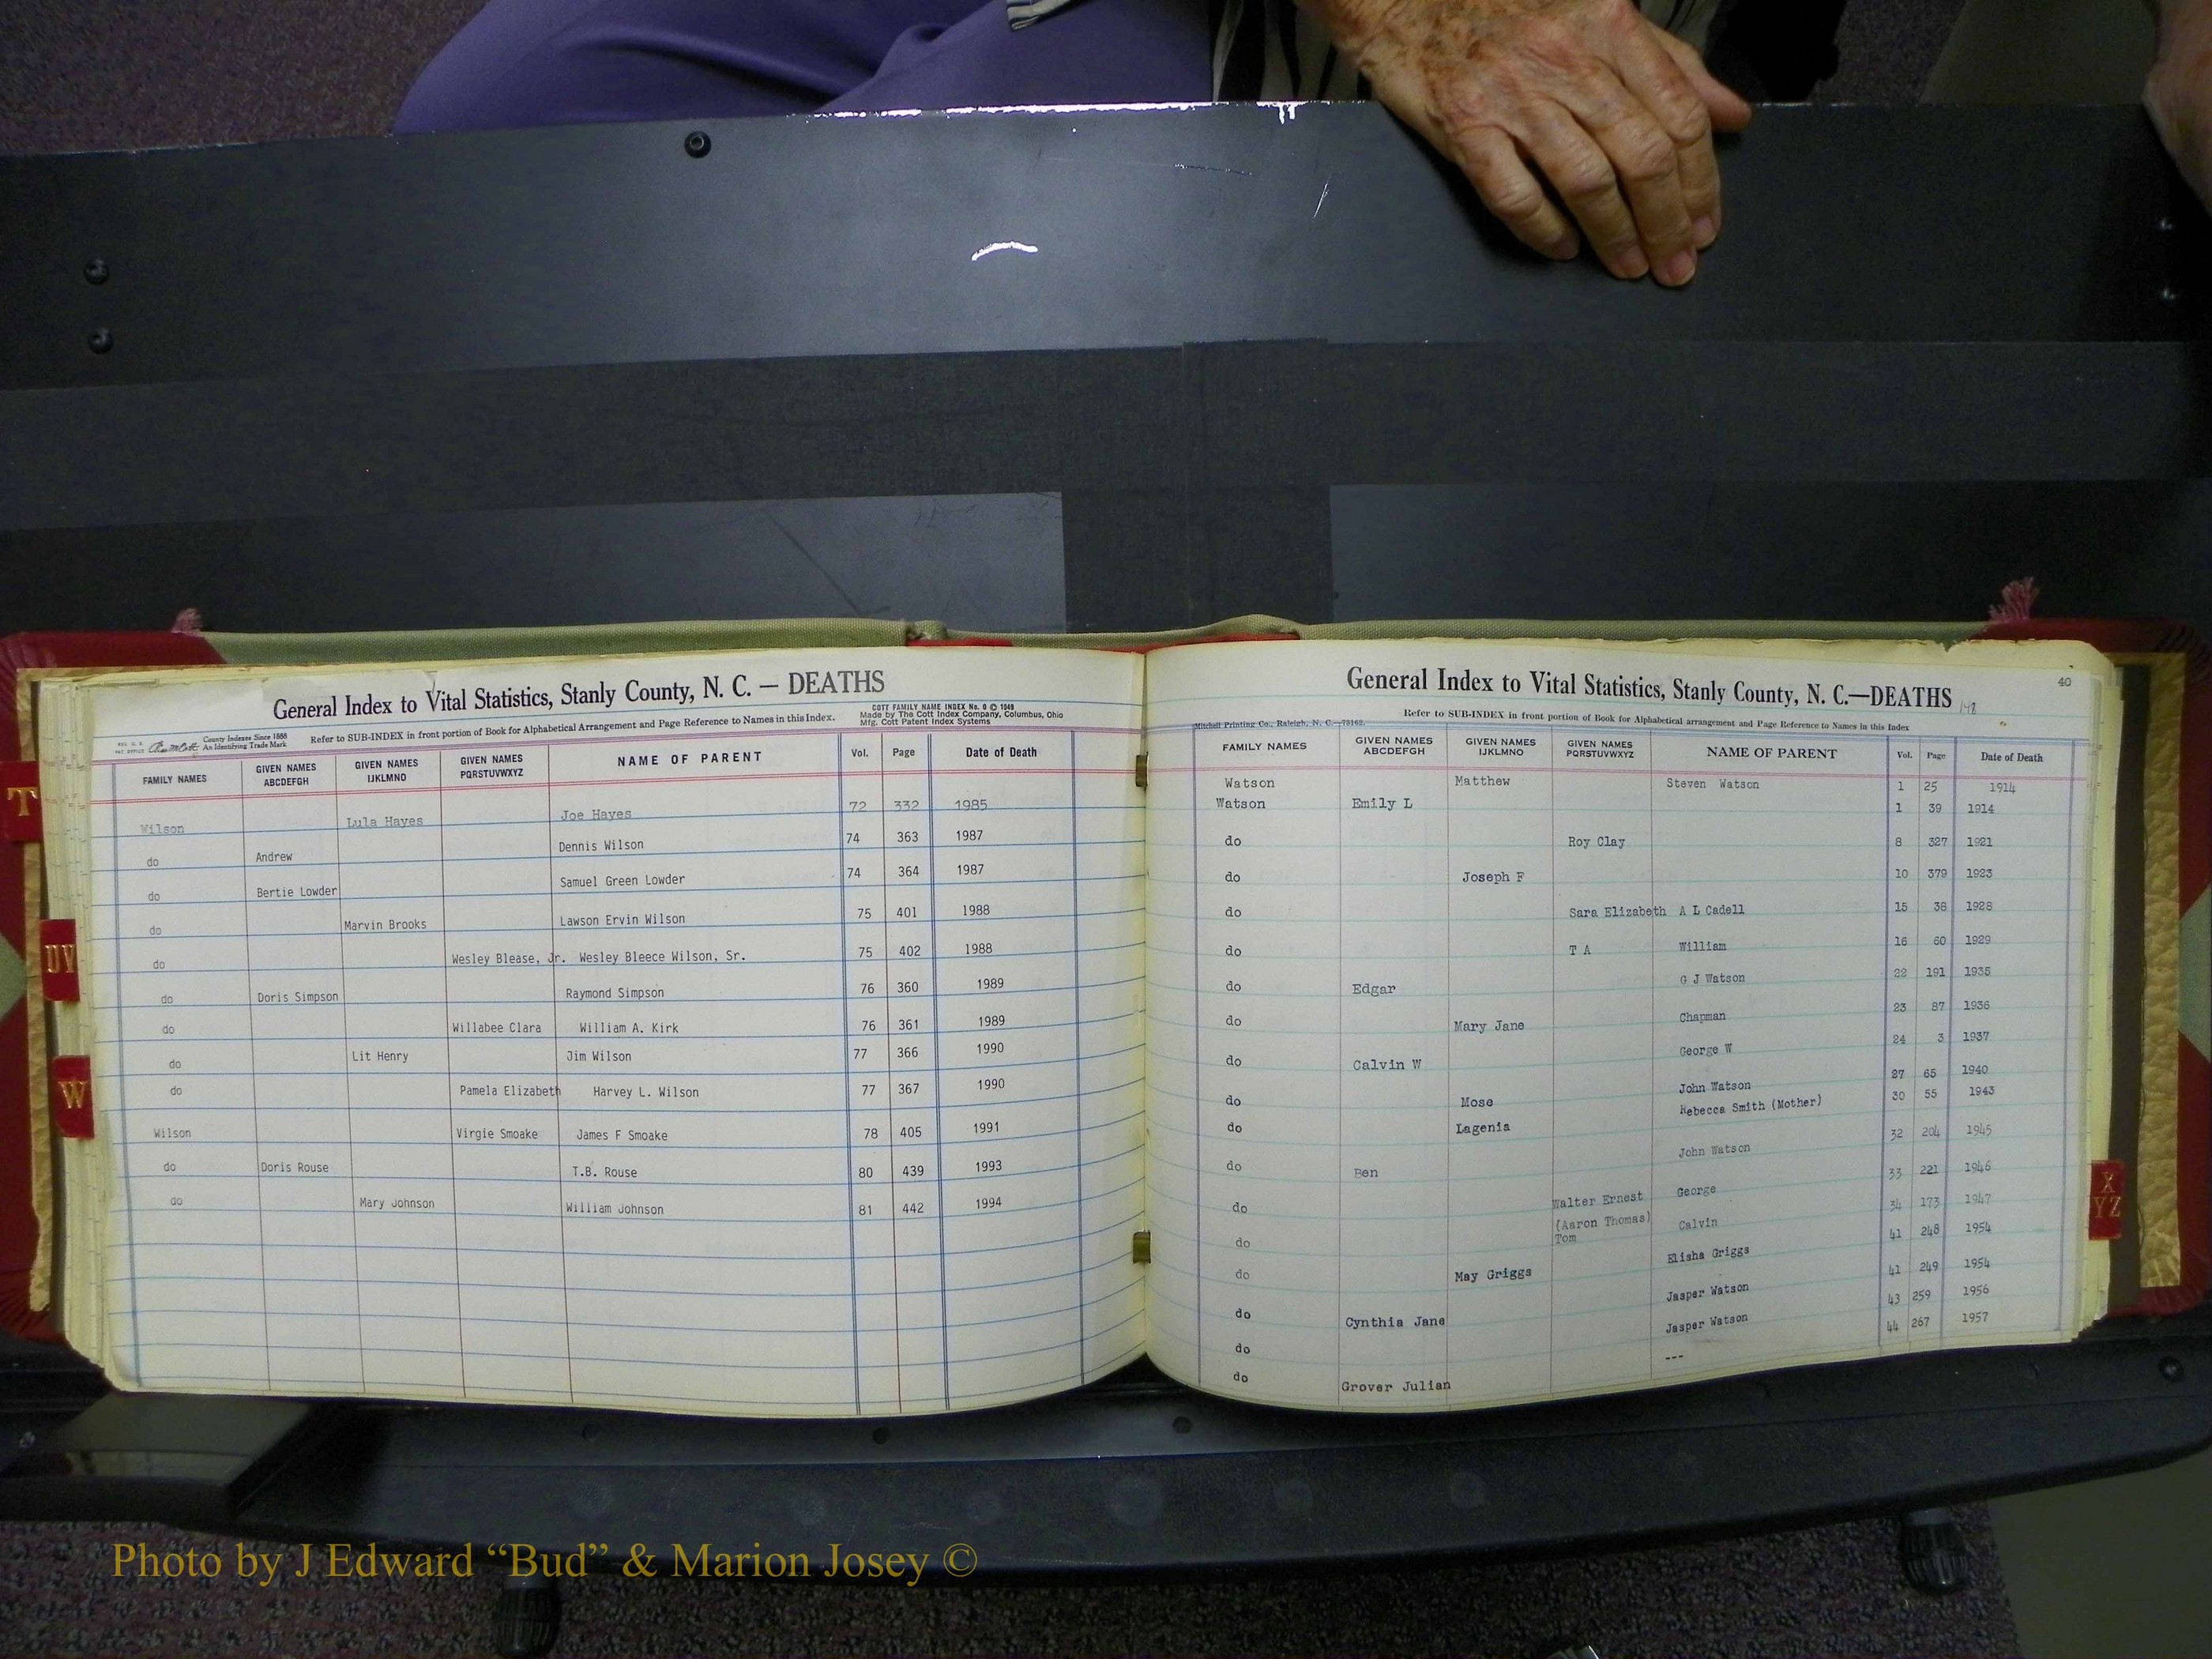 General Index to Vital Statistics, Stanly County, N. C. — DEATHS
COTT FAMILY NAME INDEX No. 0 © 1949
Made by The Cott Index Company, Columbus, Ohio
Mfg. Cott Patent Index Systems
County Indexes Since 1888
An Identifying Trade Mark
Refer to SUB-INDEX in front portion of Book for Alphabetical Arrangement and Page Reference to Names in this Index.
FAMILY NAMES GIVEN NAMES ABCDEFGH GIVEN NAMES IJKLMNO GIVEN NAMES PQRSTUVWXYZ NAME OF PARENT Vol. Page Date of Death
Wilson Lula Hayes Joe Hayes 72 332 1985
do Andrew Dennis Wilson 74 363 1987
do Bertie Lowder Samuel Green Lowder 74 364 1987
do Marvin Brooks Lawson Ervin Wilson 75 401 1988
do Wesley Blease, Jr. Wesley Bleece Wilson, Sr. 75 402 1988
do Doris Simpson Raymond Simpson 76 360 1989
do Willabee Clara William A. Kirk 76 361 1989
do Lit Henry Jim Wilson 77 366 1990
do Pamela Elizabeth Harvey L. Wilson 77 367 1990
Wilson Virgie Smoake James F Smoake 78 405 1991
do Doris Rouse T.B. Rouse 80 439 1993
do Mary Johnson William Johnson 81 442 1994
T
UV
W
General Index to Vital Statistics, Stanly County, N. C.—DEATHS 148
40
Mitchell Printing Co., Raleigh, N. C.—78162.
Refer to SUB-INDEX in front portion of Book for Alphabetical arrangement and Page Reference to Names in this Index
FAMILY NAMES GIVEN NAMES ABCDEFGH GIVEN NAMES IJKLMNO GIVEN NAMES PQRSTUVWXYZ NAME OF PARENT Vol. Page Date of Death
Watson Matthew Steven Watson 1 25 1914
Watson Emily L 1 39 1914
do Roy Clay 8 327 1921
do Joseph F 10 379 1923
do Sara Elizabeth A L Cadell 15 38 1928
do T A William 16 60 1929
do Edgar G J Watson 22 191 1935
do Mary Jane Chapman 23 87 1936
do Calvin W George W 24 3 1937
do Mose John Watson 27 65 1940
do Lagenia Rebecca Smith (Mother) 30 55 1943
do Ben John Watson 32 204 1945
do Walter Ernest George 33 221 1946
do (Aaron Thomas) Tom Calvin 34 173 1947
do May Griggs Elisha Griggs 41 248 1954
do Cynthia Jane Jasper Watson 41 249 1954
do Jasper Watson 43 259 1956
do Grover Julian --- 44 267 1957
X
YZ
Photo by J Edward “Bud” & Marion Josey ©